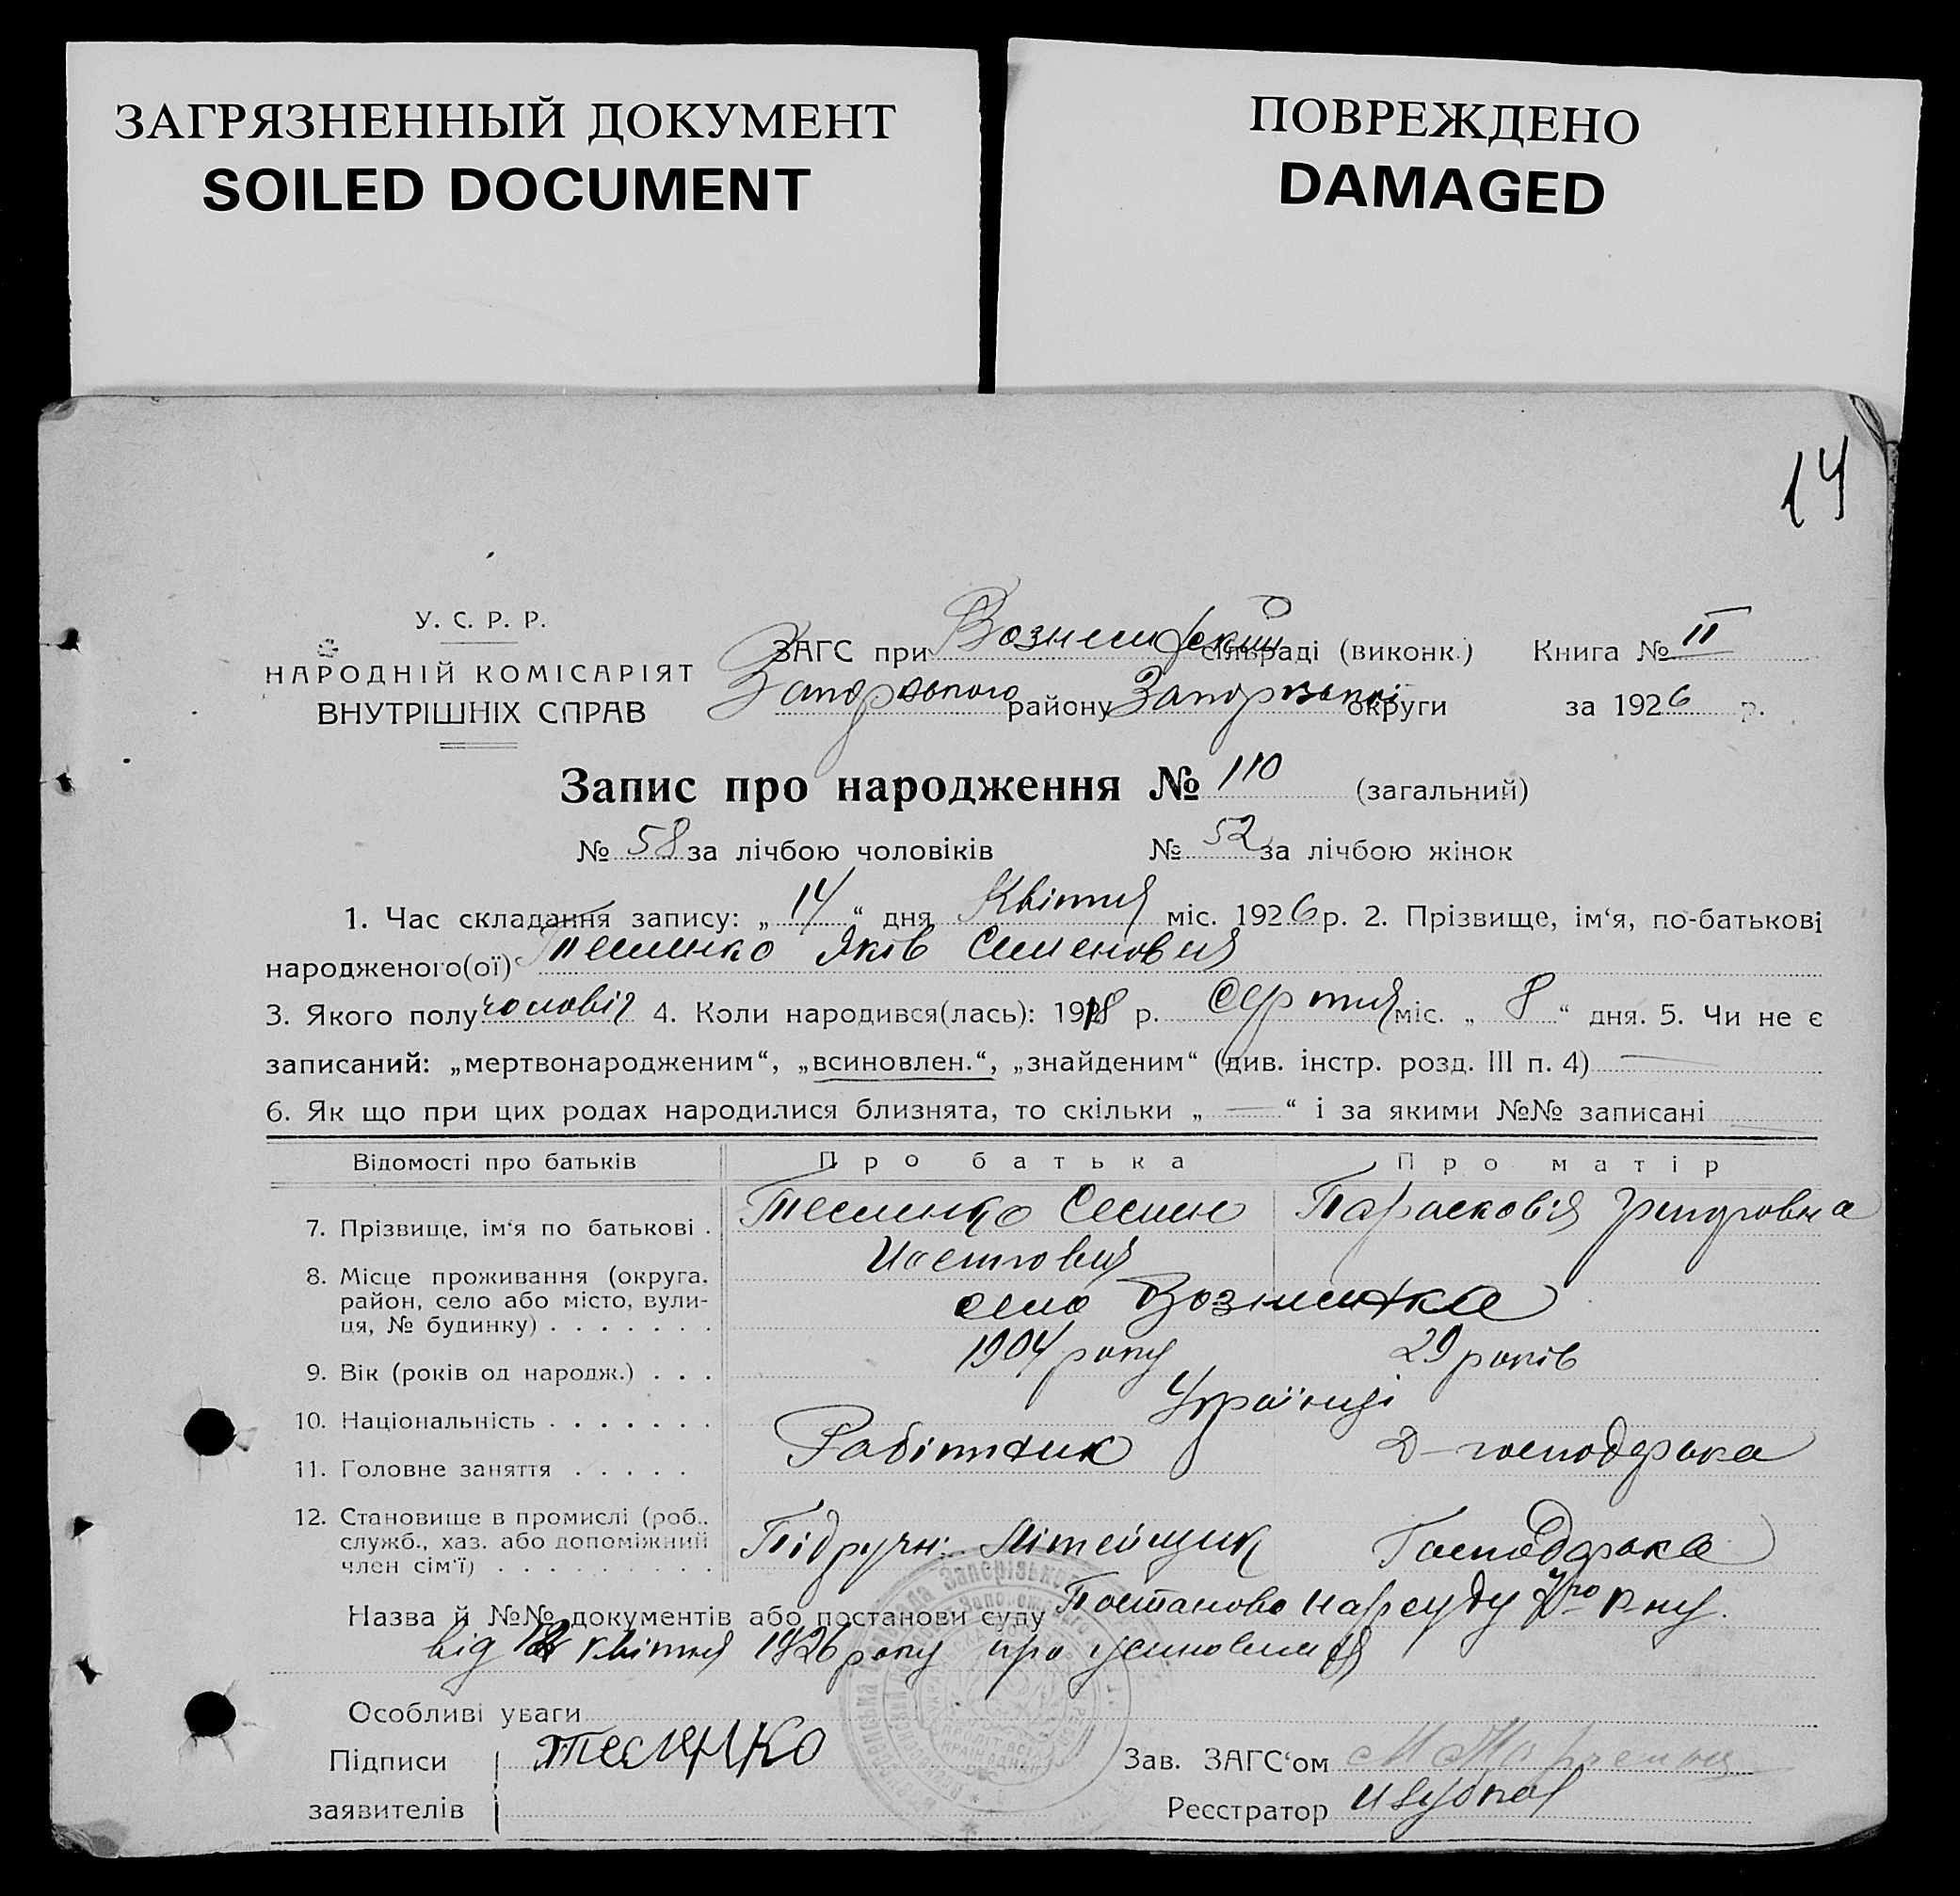 ЗАГРЯЗНЕННЫЙ ДОКУМЕНТ
SOILED DOCUMENT
ПОВРЕЖДЕНО
DAMAGED
14
У. С. Р. Р.
НАРОДНІЙ КОМІСАРІЯТ
ВНУТРІШНІХ СПРАВ
ЗАГС при сільраді (виконк.) Книга № II
району округи за 1926 р.
Запис про народження № 110 (загальний)
№ 58 за лічбою чоловіків № 52 за лічбою жінок
1. Час складання запису: „ 14 “ дня Квітня міс. 1926 р. 2. Прізвище, ім‘я, по-батькові
народженого(ої) Теслинко Яків Семенович
3. Якого полу чоловіч 4. Коли народився(лась): 1918 р. Серпня міс. „ 8 “ дня. 5. Чи не є
записаний: „мертвонародженим“, „всиновлен.“, „знайденим“ (див. інстр. розд. III п. 4) —
6. Як що при цих родах народилися близнята, то скільки „ — “ і за якими №№ записані
Відомості про батьків Про батька Про матір
7. Прізвище, ім‘я по батькові . Теслинко Семен Парасковія Григоровна
8. Місце проживання (округа, район, село або місто, вулиця, № будинку) . . . . . . . село Вознисенка
9. Вік (років од народж.) . . . 1904 року 29 років
10. Національність . . . . . . . Українці
11. Головне заняття . . . . . Робітник Д-господарка
12. Становище в промислі (роб., служб., хаз. або допоміжний член сім‘ї) . . . . . . . . . Підручн: Літейщик Господарка
Назва й №№ документів або постанови суду Постанова нарсуду
від квітня 1926 року про усиновлення
Особливі уваги
Підписи заявителів Теслянко
Зав. ЗАГС‘ом
Реєстратор